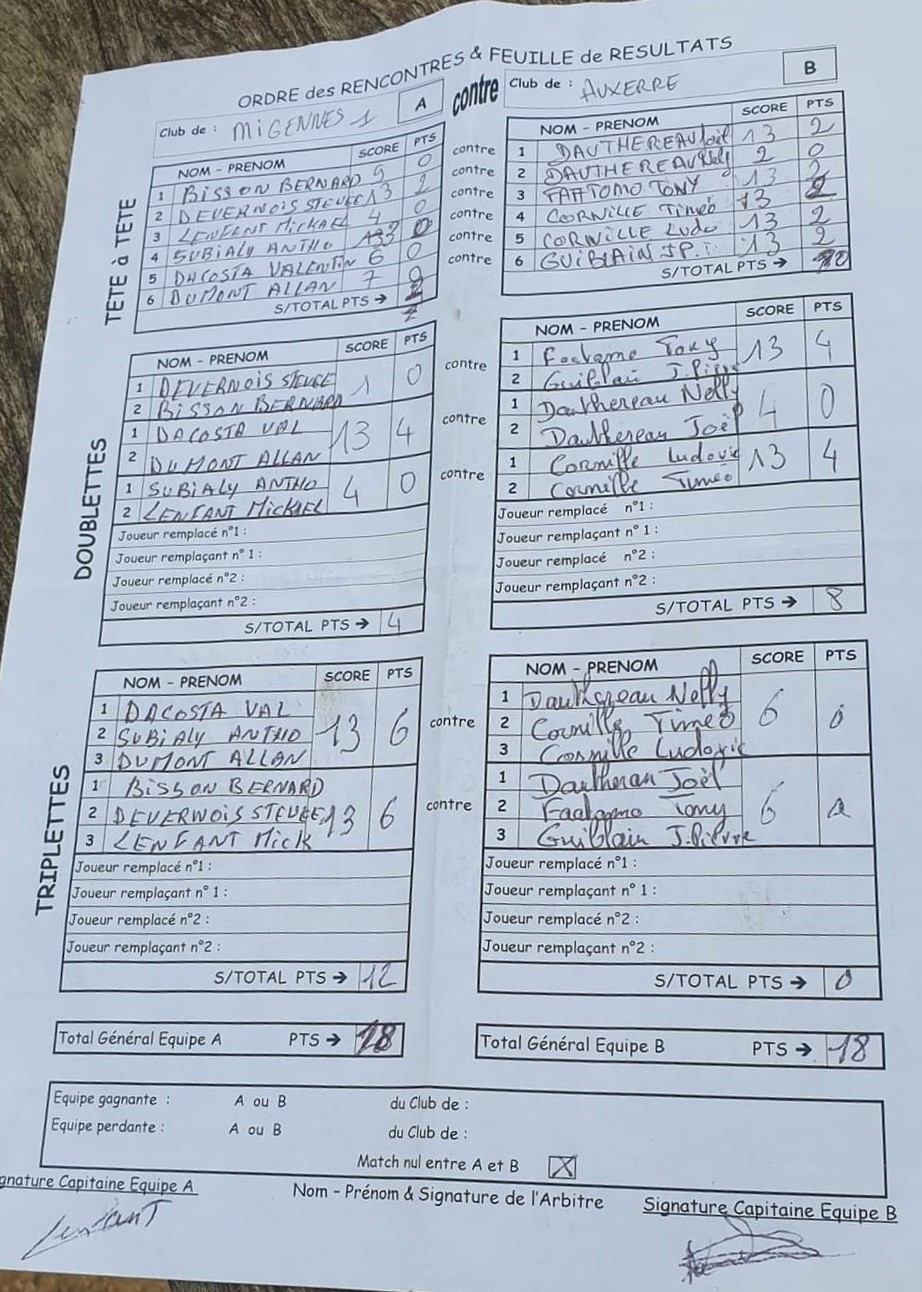 ORDRE des RENCONTRES & FEUILLE de RESULTATS
Club de : MIGENNES 1 A
contre
Club de : AUXERRE B
TÊTE à TÊTE
NOM - PRENOM SCORE PTS
1 BISSON BERNARD 9 0
2 DEVERNOIS STEVEE 13 2
3 LENFANT MICKAEL 4 0
4 SUBIALY ANTHO 0
5 DACOSTA VALENTIN 6 0
6 DUMONT ALLAN 7 0
S/TOTAL PTS → 2
contre
contre
contre
contre
contre
contre
NOM - PRENOM SCORE PTS
1 DAUTHEREAU Joël 13 2
2 DAUTHEREAU Nelly 2 0
3 FAATOMO TONY 13 2
4 CORNILLE Timéo 13 2
5 CORNILLE Ludo 13 2
6 GUIBLAIN J.P. 13 2
S/TOTAL PTS → 10
DOUBLETTES
NOM - PRENOM SCORE PTS
1 DEVERNOIS STEVEE 1 0
2 BISSON BERNARD
1 DACOSTA VAL 13 4
2 DUMONT ALLAN
1 SUBIALY ANTHO 4 0
2 LENFANT MICKAEL
Joueur remplacé n°1 :
Joueur remplaçant n° 1 :
Joueur remplacé n°2 :
Joueur remplaçant n°2 :
S/TOTAL PTS → 4
contre
contre
contre
NOM - PRENOM SCORE PTS
1 Faatomo Tony 13 4
2 Guiblain J.Pierre
1 Dauthereau Nelly 4 0
2 Dauthereau Joël
1 Cornille Ludovic 13 4
2 Cornille Timéo
Joueur remplacé n°1 :
Joueur remplaçant n° 1 :
Joueur remplacé n°2 :
Joueur remplaçant n°2 :
S/TOTAL PTS → 8
TRIPLETTES
NOM - PRENOM SCORE PTS
1 DACOSTA VAL
2 SUBIALY ANTHO 13 6
3 DUMONT ALLAN
1 BISSON BERNARD
2 DEVERNOIS STEVEE 13 6
3 LENFANT MICK
Joueur remplacé n°1 :
Joueur remplaçant n° 1 :
Joueur remplacé n°2 :
Joueur remplaçant n°2 :
S/TOTAL PTS → 12
contre
contre
NOM - PRENOM SCORE PTS
1 Dauthereau Nelly
2 Cornille Timéo 6 0
3 Cornille Ludovic
1 Dautheran Joël
2 Faatomo Tony 6 0
3 Guiblain J.Pierre
Joueur remplacé n°1 :
Joueur remplaçant n° 1 :
Joueur remplacé n°2 :
Joueur remplaçant n°2 :
S/TOTAL PTS → 0
Total Général Equipe A PTS → 18
Total Général Equipe B PTS → 18
Equipe gagnante : A ou B du Club de :
Equipe perdante : A ou B du Club de :
Match nul entre A et B X
gnature Capitaine Equipe A
Nom - Prénom & Signature de l'Arbitre
Signature Capitaine Equipe B
Lenfant